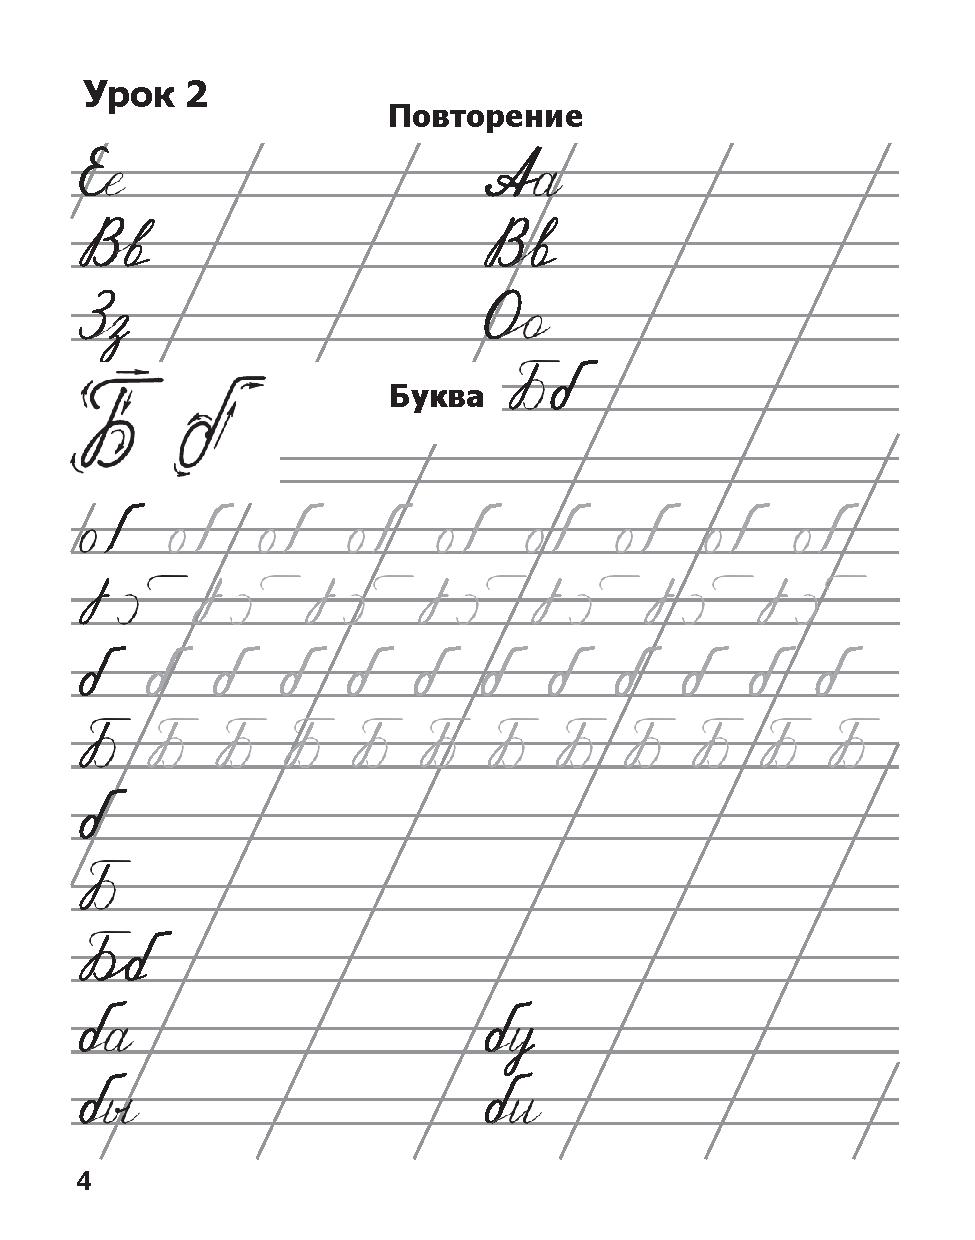 Урок 2
Повторение
Ее Аа
Вв Вв
Зз Оо
Б б Буква Бб
б б б б б б б б б б б б
Б Б Б Б Б Б Б Б Б Б Б Б
б
Б
Бб
ба бу
бы би
4